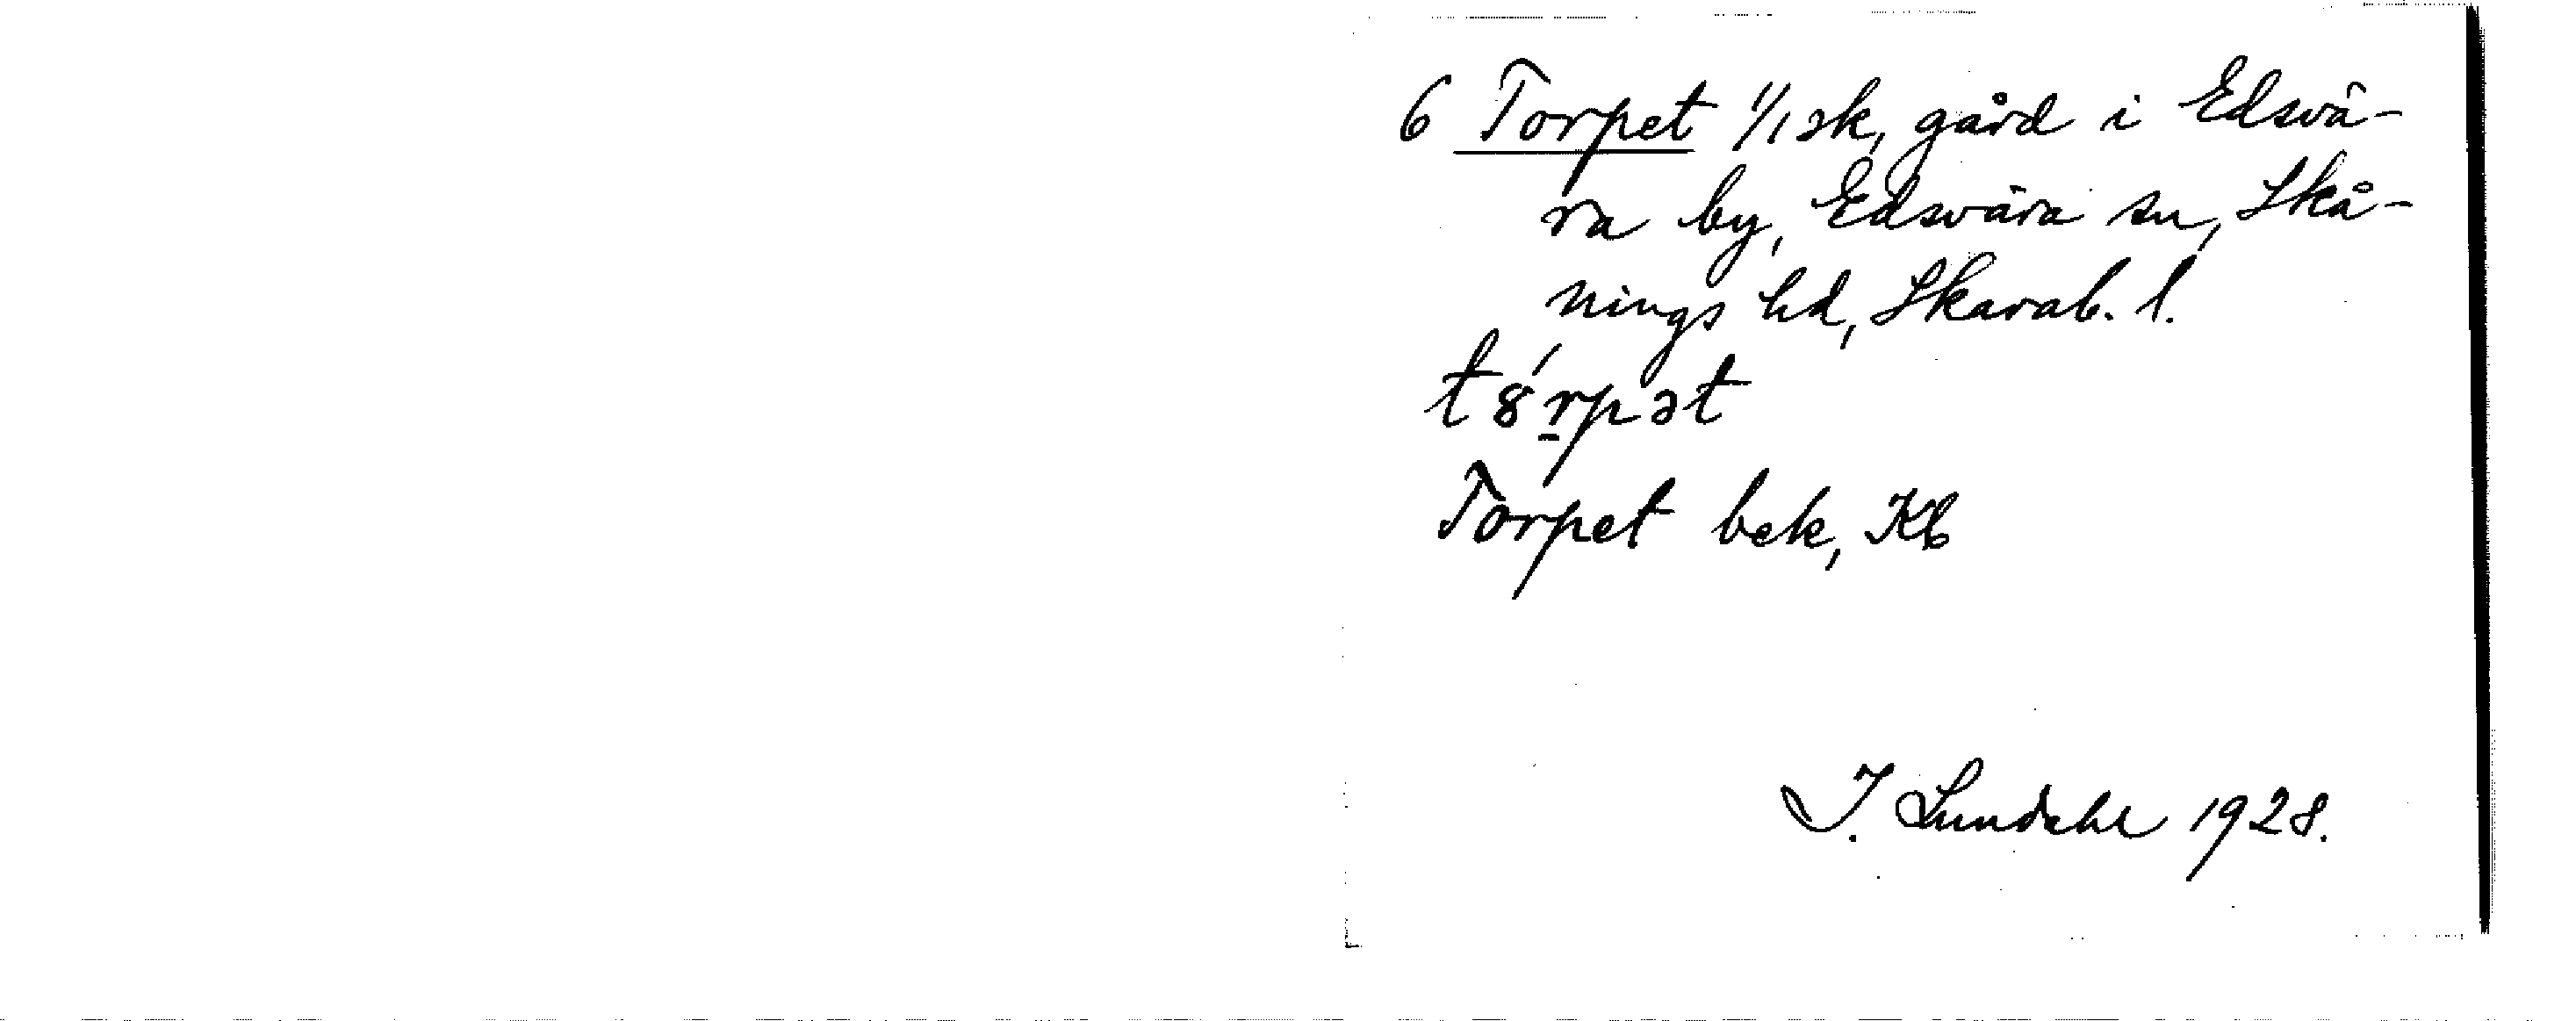 6 Torpet 1/1 sk, gård i Edsvä-
ra by, Edsvära sn, Skå-
nings hd, Skarab. l.
t8́r̠pət
Torpet bek, Kb
I. Lundahl 1928.